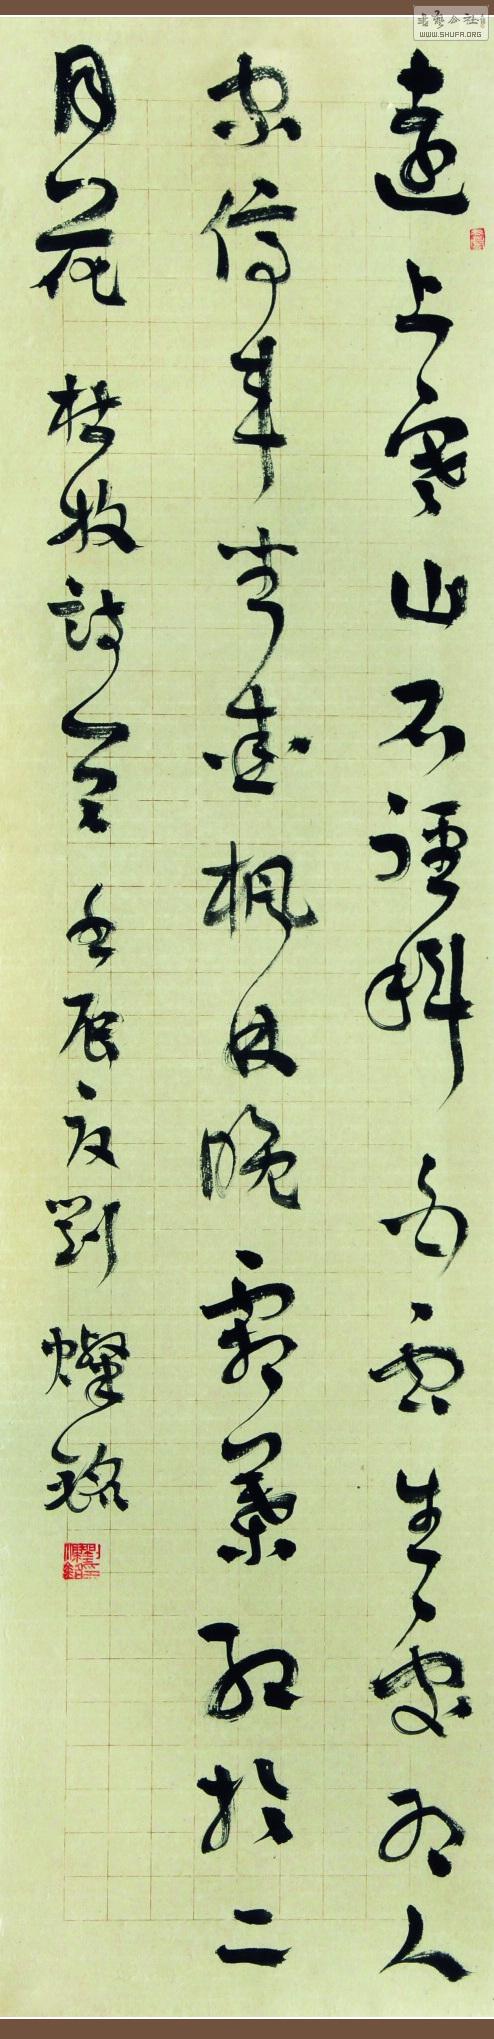 書藝公社
WWW.SHUFA.ORG
遠上寒山石徑斜白雲生處有人
家停車坐愛楓林晚霜葉紅於二
月花 杜牧詩一首 壬辰夏劉燦銘
劉燦銘印